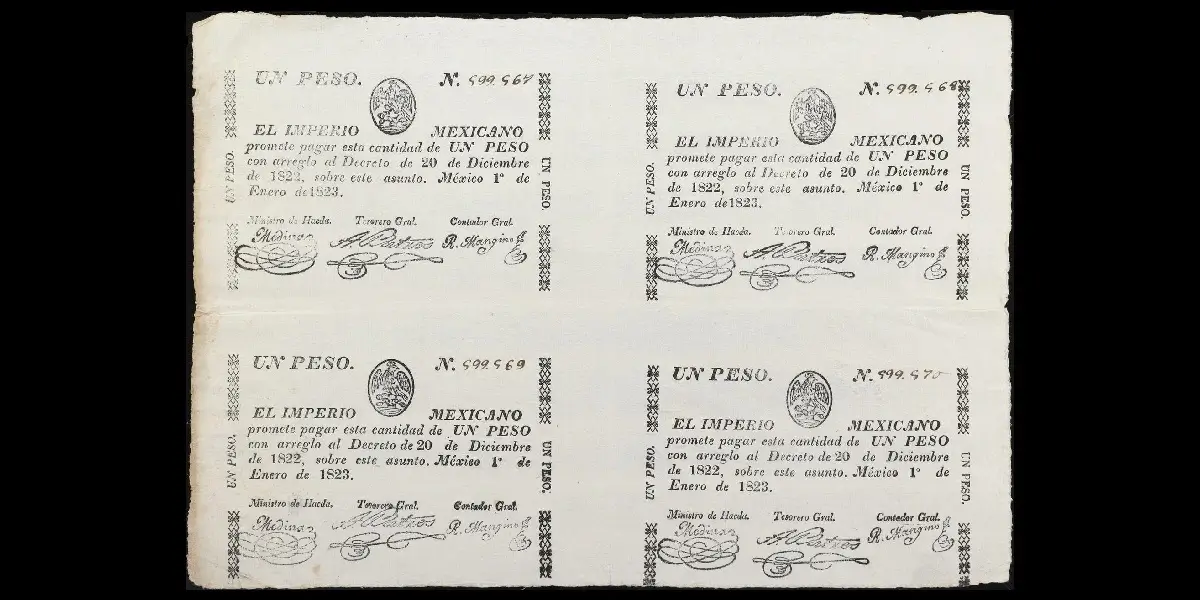 UN PESO. N. 599.567
EL IMPERIO MEXICANO
promete pagar esta cantidad de UN PESO
con arreglo al Decreto de 20 de Diciembre
de 1822, sobre este asunto. México 1º de
Enero de 1823.
Ministro de Hacda. Tesorero Gral. Contador Gral.
Medina R. Mangino
UN PESO.
UN PESO.
UN PESO. N. 599.568
EL IMPERIO MEXICANO
promete pagar esta cantidad de UN PESO
con arreglo al Decreto de 20 de Diciembre
de 1822, sobre este asunto. México 1º de
Enero de 1823.
Ministro de Hacda. Tesorero Gral. Contador Gral.
Medina R. Mangino
UN PESO.
UN PESO.
UN PESO. N. 599.569
EL IMPERIO MEXICANO
promete pagar esta cantidad de UN PESO
con arreglo al Decreto de 20 de Diciembre
de 1822, sobre este asunto. México 1º de
Enero de 1823.
Ministro de Hacda. Tesorero Gral. Contador Gral.
Medina R. Mangino
UN PESO.
UN PESO.
UN PESO. N. 599.570
EL IMPERIO MEXICANO
promete pagar esta cantidad de UN PESO
con arreglo al Decreto de 20 de Diciembre
de 1822, sobre este asunto. México 1º de
Enero de 1823.
Ministro de Hacda. Tesorero Gral. Contador Gral.
Medina R. Mangino
UN PESO.
UN PESO.